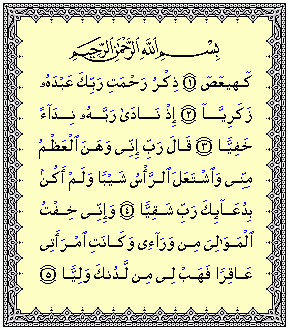 بِسْمِ ٱللَّهِ ٱلرَّحْمَٰنِ ٱلرَّحِيمِ
كٓهيعٓصٓ ١ ذِكْرُ رَحْمَتِ رَبِّكَ عَبْدَهُۥ
زَكَرِيَّآ ٢ إِذْ نَادَىٰ رَبَّهُۥ نِدَآءً
خَفِيًّا ٣ قَالَ رَبِّ إِنِّى وَهَنَ ٱلْعَظْمُ
مِنِّى وَٱشْتَعَلَ ٱلرَّأْسُ شَيْبًا وَلَمْ أَكُنۢ
بِدُعَآئِكَ رَبِّ شَقِيًّا ٤ وَإِنِّى خِفْتُ
ٱلْمَوَٰلِىَ مِن وَرَآءِى وَكَانَتِ ٱمْرَأَتِى
عَاقِرًا فَهَبْ لِى مِن لَّدُنكَ وَلِيًّا ٥